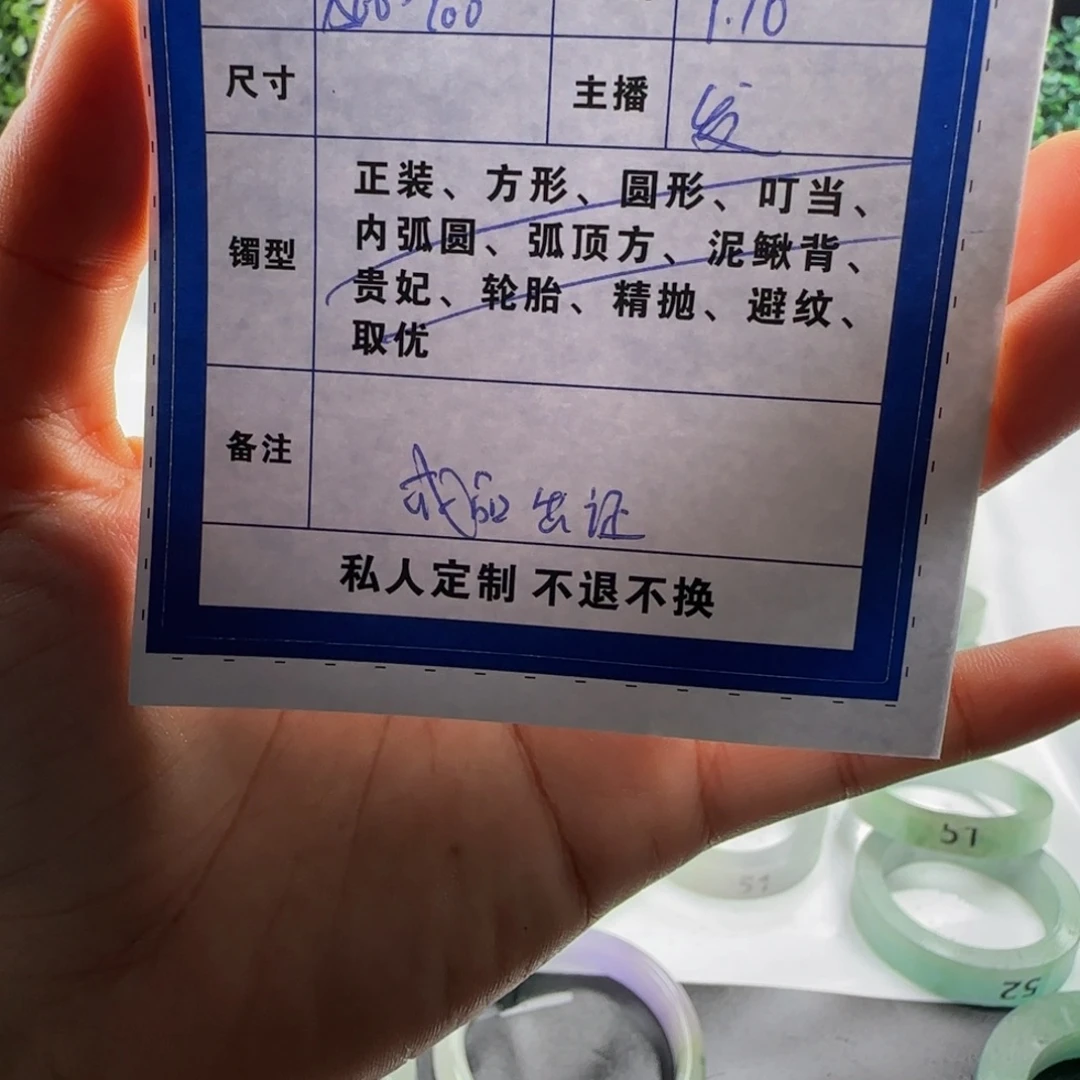 1.10
尺寸
主播
发
镯型
正装、方形、圆形、叮当、
内弧圆、弧顶方、泥鳅背、
贵妃、轮胎、精抛、避纹、
取优
备注
成品出证
私人定制 不退不换
51
51
52